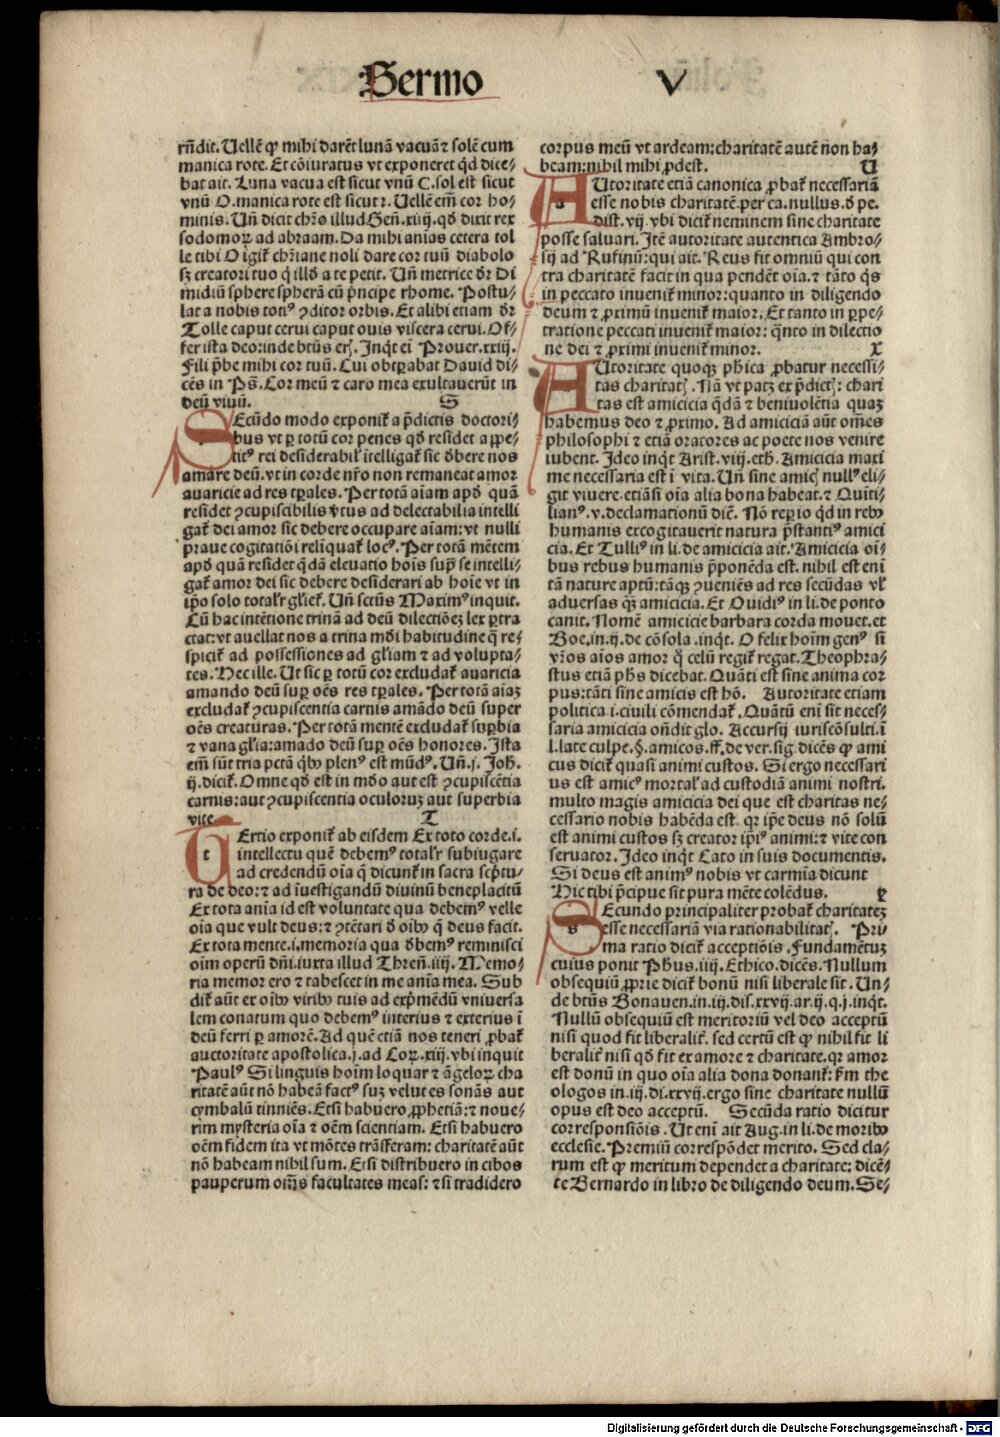 Sermo V
rñdit. Uellẽ ꝙ mihi darẽt lunã vacuã ⁊ solẽ cum
manica rote. Et cõiuratus vt exponeret qd dice⸗
bat ait. Luna vacua est sicut vnũ C. sol est sicut
vnũ O. manica rote est sicut ꝛ. Uellẽ em̃ cor ho⸗
minis. Uñ dicit chr̃o illud Geñ. xiiij. qd dixit rex
sodomoꝝ ad abraam. Da mihi aĩas cetera tol
le tibi O igiť chr̃iane noli dare cor tuũ diabolo
sꝫ creatori tuo q̇ illď a te petit. Uñ metrice dr̃ Di
midiũ sphere spherã cũ p̃ncipe rhome. Postu⸗
lat a nobis totꝰ ꝯditor orbis. Et alibi etiam dr̃
Tolle caput cerui caput ouis viscera cerui. Of⸗
fer ista deo: inde btũs erꝭ. Inq̇t eĩ Prouer. xxiij.
Fili p̃be mihi cor tuũ. Cui obtꝑabat Dauid di⸗
cẽs in Pš. Cor meũ ⁊ caro mea exultauerũt in
deũ viuũ. S
SEcũdo modo exponiť a p̃dictis doctori⸗
bus vt ꝑ totũ cor penes qď residet appe⸗
titꝰ rei desiderabiľ ĩtelligať sic ďbere nos
amare deũ. vt in corde nr̃o non remaneat amor
auaricie ad res tꝑales. Per totã aĩam apď quã
residet ꝯcupiscibilis ṽtus ad delectabilia intelli
gať dei amor sic debere occupare aĩam: vt nulli
praue cogitatiõi relĩquať locꝰ. Per totã mẽtem
apď quã residet q̇dã eleuatio hoĩs sup̃ se intelli⸗
gať amor dei sic debere desiderari ab hoĩe vt in
ip̃o solo totaľr gľieť. Uñ sctũs Maximꝰ inquit.
Cũ hac intẽtione trinã ad deũ dilectiõeꝫ lex ꝑtra
ctat: vt auellat nos a trina mďi habitudine q̃ re⸗
spiciť ad possessiones ad gľiam ⁊ ad volupta⸗
tes. Hec ille. Ut sic ꝑ totũ cor excludať auaricia
amando deũ suꝑ oẽs res tꝑales. Per totã aĩaꝫ
excludať ꝯcupiscentia carnis amãdo deũ super
oẽs creaturas. Per totã mentẽ excludať suꝑbia
⁊ vana gľia: amãdo deũ suꝑ oẽs honores. Ista
em̃ sũt tria pctã q̇bꝰ plenꝰ est mũdꝰ. Uñ. j. Joh̃.
ij. diciť. Omne qď est in mďo aut est ꝯcupiscẽtia
carnis: aut ꝯcupiscentia oculoruꝫ aut superbia
vite. T
TErtio exponiť ab eisdem Ex toto corde. i.
intellectu quẽ debemꝰ totaľr subiugare
ad credendũ oĩa q̃ dicunť in sacra scp̃tu⸗
ra de deo: ⁊ ad ĩuestigandũ diuinũ beneplacitũ
Ex tota anĩa id est voluntate qua debemꝰ velle
oĩa que vult deus: ⁊ ꝯtẽtari ď oĩbꝰ q̃ deus facit.
Ex tota mente. i. memoria qua ďbemꝰ reminisci
oĩm operũ dñi. iuxta illud Threñ. iiij. Memo⸗
ria memor ero ⁊ tabescet in me anĩa mea. Sub
diť aũt ex oĩbꝰ viribꝰ tuis ad exp̃mẽdũ vniuersa
lem conatum quo debemꝰ interius ⁊ exterius ĩ
deũ ferri ꝑ amorẽ. Ad quẽ etiã nos teneri ꝓbať
auctoritate apostolica. j. ad Coꝝ. xiij. vbi inquit
Paulꝰ Si linguis hoĩm loquar ⁊ ãgeloꝝ cha
ritatẽ aũt nõ habeã factꝰ suꝫ velut es sonãs aut
cymbalũ tinniẽs. Etsi habuero ꝓphetiã: ⁊ noue⸗
rim mysteria oĩa ⁊ oẽm scientiam. Etsi habuero
oẽm fidem ita vt mõtes trãsferam: charitatẽ aũt
nõ habeam nihil sum. Etsi distribuero in cibos
pauperum om̃s facultates meas: ⁊ si tradidero
corpus meũ vt ardeam: charitatẽ autẽ non ha⸗
beam: nihil mihi ꝓdest. U
AUtoritate etiã canonica ꝓbať necessariã
esse nobis charitatẽ. per ca. nullus. ď pe.
dist. vij. vbi diciť neminem sine charitate
posse saluari. Itẽ autoritate autentica Ambro⸗
sij ad Rufinũ: qui ait. Reus fit omniũ qui con
tra charitatẽ facit in qua pendẽt oĩa. ⁊ tãto q̇s
in peccato inueniť minor: quanto in diligendo
deum ⁊ ꝓximũ inueniť maior. Et tanto in ꝑpe⸗
tratione peccati inueniť maior: q̃nto in dilectio
ne dei ⁊ ꝓximi inueniť minor. X
AUtoritate quoqꝫ ph̃ica ꝓbatur necessi⸗
tas charitatꝭ. Nã vt patꝫ ex p̃dictꝭ: chari
tas est amicicia q̃dã ⁊ beniuolẽtia quaꝫ
habemus deo ⁊ ꝓximo. Ad amiciciã aũt om̃es
philosophi ⁊ etiã oratores ac poete nos venire
iubent. Ideo inq̇t Arist. viij. eth. Amicicia maxi
me necessaria est ĩ vita. Uñ sine amicꝭ nullꝰ eli⸗
git viuere. etiãsi oĩa alia bona habeat. ⁊ Quĩti⸗
lianꝰ. v. declamationũ dicẽ. Nõ reperio qd in rebꝰ
humanis excogitauerit natura p̃stantiꝰ amici
cia. Et Tulliꝰ in li. de amicicia ait. Amicicia oĩ⸗
bus rebus humanis p̃ponẽda est. nihil est eni
tã nature aptũ: tãqꝫ ꝯueniẽs ad res secũdas vľ
aduersas qꝫ amicicia. Et Ouidiꝰ in li. de ponto
canit. Nomẽ amicicie barbara corda mouet. et
Boe. in. ij. de cõsola. inq̇t. O felix hoĩm genꝰ si
vr̃os aĩos amor q̇ celũ regiť regat. Theophra⸗
stus etiã ph̃s dicebat. Quãti est sine anima cor
pus: tãti sine amicis est hõ. Autoritate etiam
politica. i. ciuili cõmendať. Quãtũ enĩ sit neces⸗
saria amicicia oñdit glo. Accursij iuriscõsulti. ĩ
l. late culpe. §. amicos. ff. de ver. sig. dicẽs ꝙ ami
cus diciť quasi animi custos. Si ergo necessari
us est amicꝰ mortaľ ad custodiã animi nostri.
multo magis amicicia dei que est charitas ne⸗
cessario nobis habẽda est. qꝛ ip̃e deus nõ solũ
est animi custos sꝫ creator ip̃iꝰ animi: ⁊ vite con
seruator. Ideo inq̇t Cato in suis documentis.
Si deus est animꝰ nobis vt carmĩa dicunt
Hic tibi p̃cipue sit pura mẽte colẽdus. Y
SEcundo principaliter probať charitateꝫ
esse necessariã via rationabilitatꝭ. Pri
ma ratio diciť acceptiõis. Fundamẽtuꝫ
cuius ponit Ph̃us. iiij. Ethico. dicẽs. Nullum
obsequiũ ꝓprie diciť bonũ nisi liberale sit. Un⸗
de btũs Bonauen. in. iij. dis. xxvij. ar. ij. q. j. inq̇t.
Nullũ obsequiũ est meritoriũ vel deo acceptũ
nisi quod fit liberaliť. sed certũ est ꝙ nihil fit li
beraliť nisi qď fit ex amore ⁊ charitate. qꝛ amor
est donũ in quo oĩa alia dona donanť: fm̃ the
ologos in. iij. di. xxvij. ergo sine charitate nullũ
opus est deo acceptũ. Secũda ratio dicitur
corresponsiõis. Ut enĩ ait Aug. in li. de moribꝰ
ecclesie. Premiũ correspõdet merito. Sed cla⸗
rum est ꝙ meritum dependet a charitate: dicẽ⸗
te Bernardo in libro de diligendo deum. Se⸗
Digitalisierung gefördert durch die Deutsche Forschungsgemeinschaft - DFG